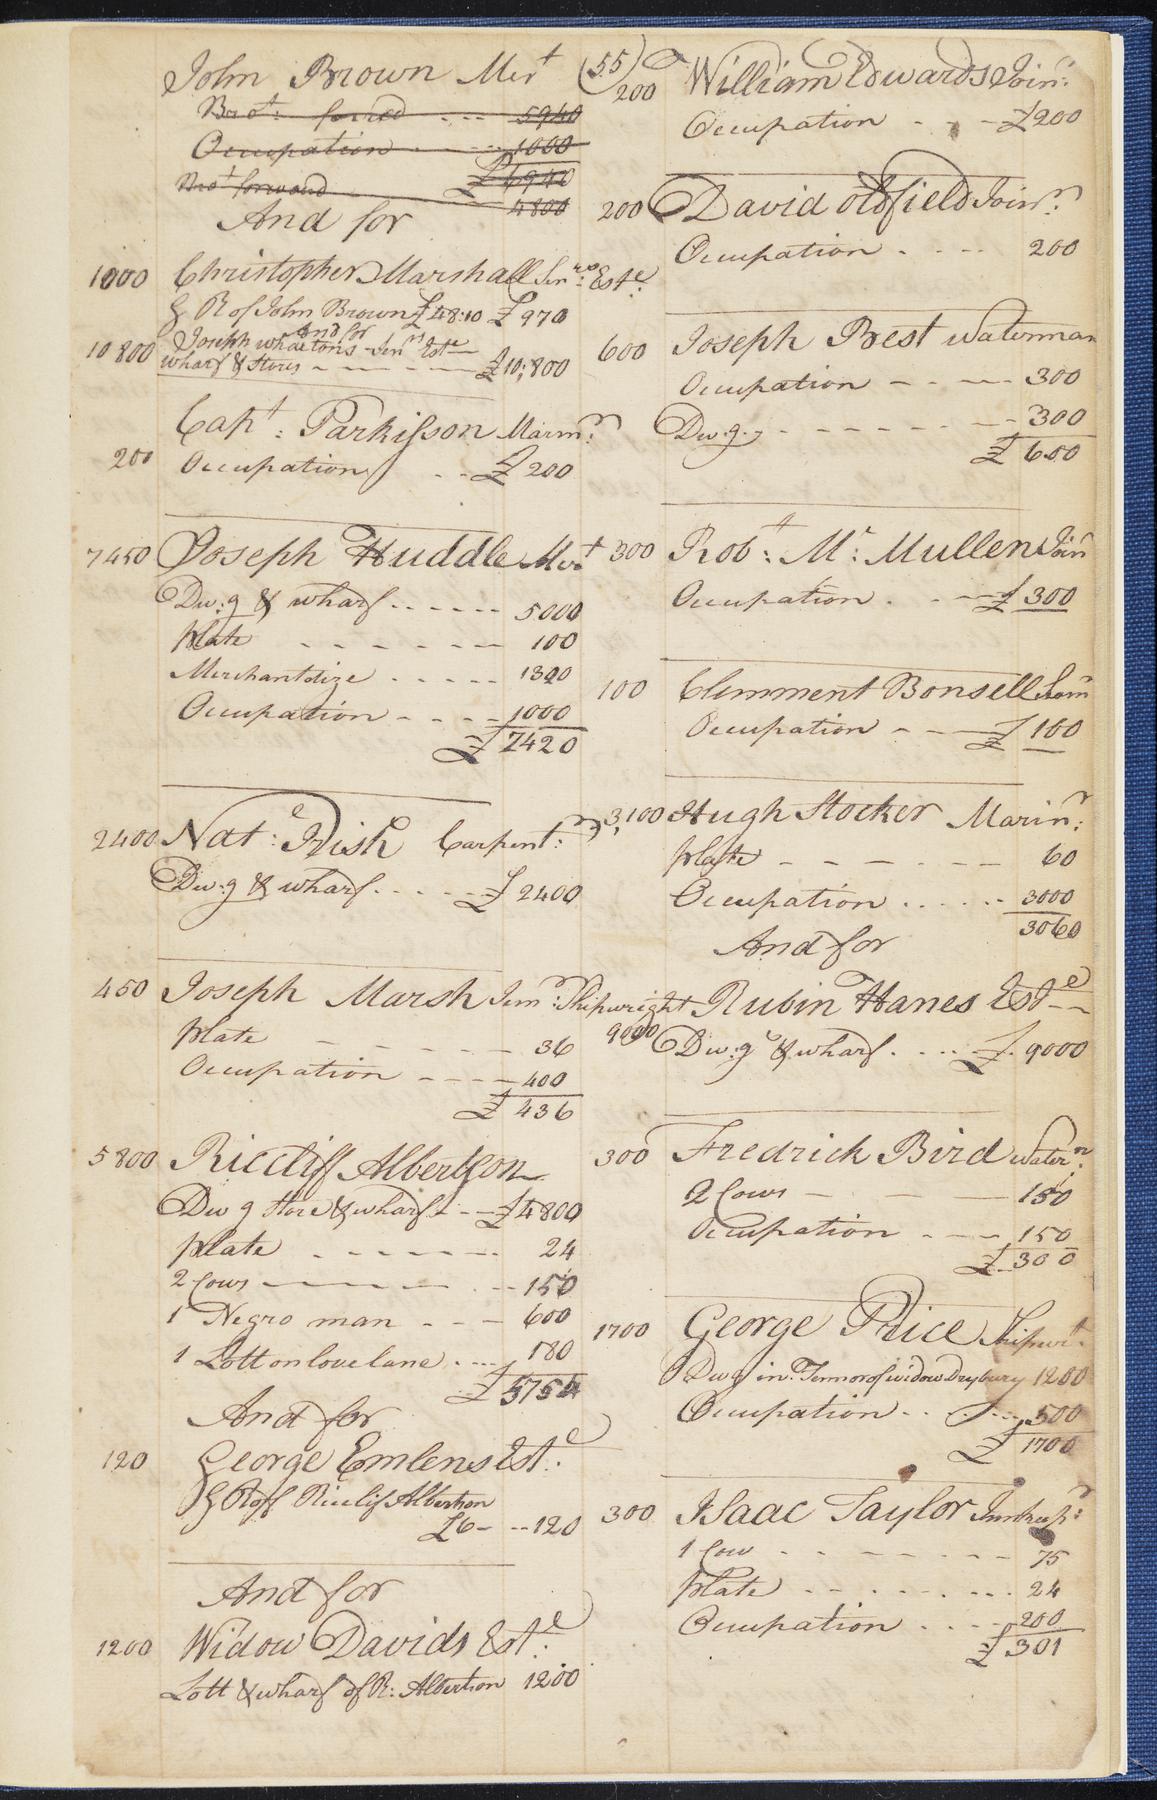 (55)
John Brown Mert
Brot: forred - - - 5940
Occupation - - - 1000
£6940
Brot forward 4800
And for
1000 Christopher Marshall Senrs Este
G R of John Brown £48:10 £970
And for
10800 Joseph Whartons Senrs Este
wharf & Stores - - - £10,800
Capt: Parkisson Marinr
200 Occupation - - £200
7450 Joseph Huddle Mert
Dw:g & wharf - - - 5000
Plate - - - 100
Merchantdize - - - 1320
Occupation - - - 1000
£7420
2400 Nat:e Irish Carpent:r
Dw:g & wharf - - - £2400
450 Joseph Marsh Junr: Shipwright
Plate - - - 36
Occupation - - - 400
£436
5800 Riccliff Albertson
Dwg Store & wharf - - £4800
Plate - - - 24
2 Cows - - - 150
1 Negro man - - - 600
1 Lott on love lane - - - 180
£5754
And for
120 George Emlens Este:
G R of Ricclif Albertson
£6 - - - 120
And for
1200 Widow Davids Este:
Lott & wharf of R: Albertson 1200
200 William Edwards Join:r
Occupation - - - £200
200 David Oldfield Join:r
Occupation - - - 200
600 Joseph Prest Waterman
Occupation - - - 300
Dw:g - - - 300
£600
300 Robt: Mc: Mullen Joinr
Occupation - - - £300
100 Clemment Bonsell
Occupation - - - £100
3,100 Hugh Stocker Marinr:
Plate - - - 60
Occupation - - - 3000
3060
And for
Rubin Hanes Este
9000 Dw:g & wharf - - - £9000
300 Fredrick Bird Watern:
2 Cows - - - 150
Occupation - - - 150
£300
1700 George Price Shipwt:
Dwg in Tennor of widow Drybury 1200
Occupation - - - 500
£1700
300 Isaac Taylor Innkeepr:
1 Cow - - - 75
Plate - - - 24
Occupation - - - 200
£301